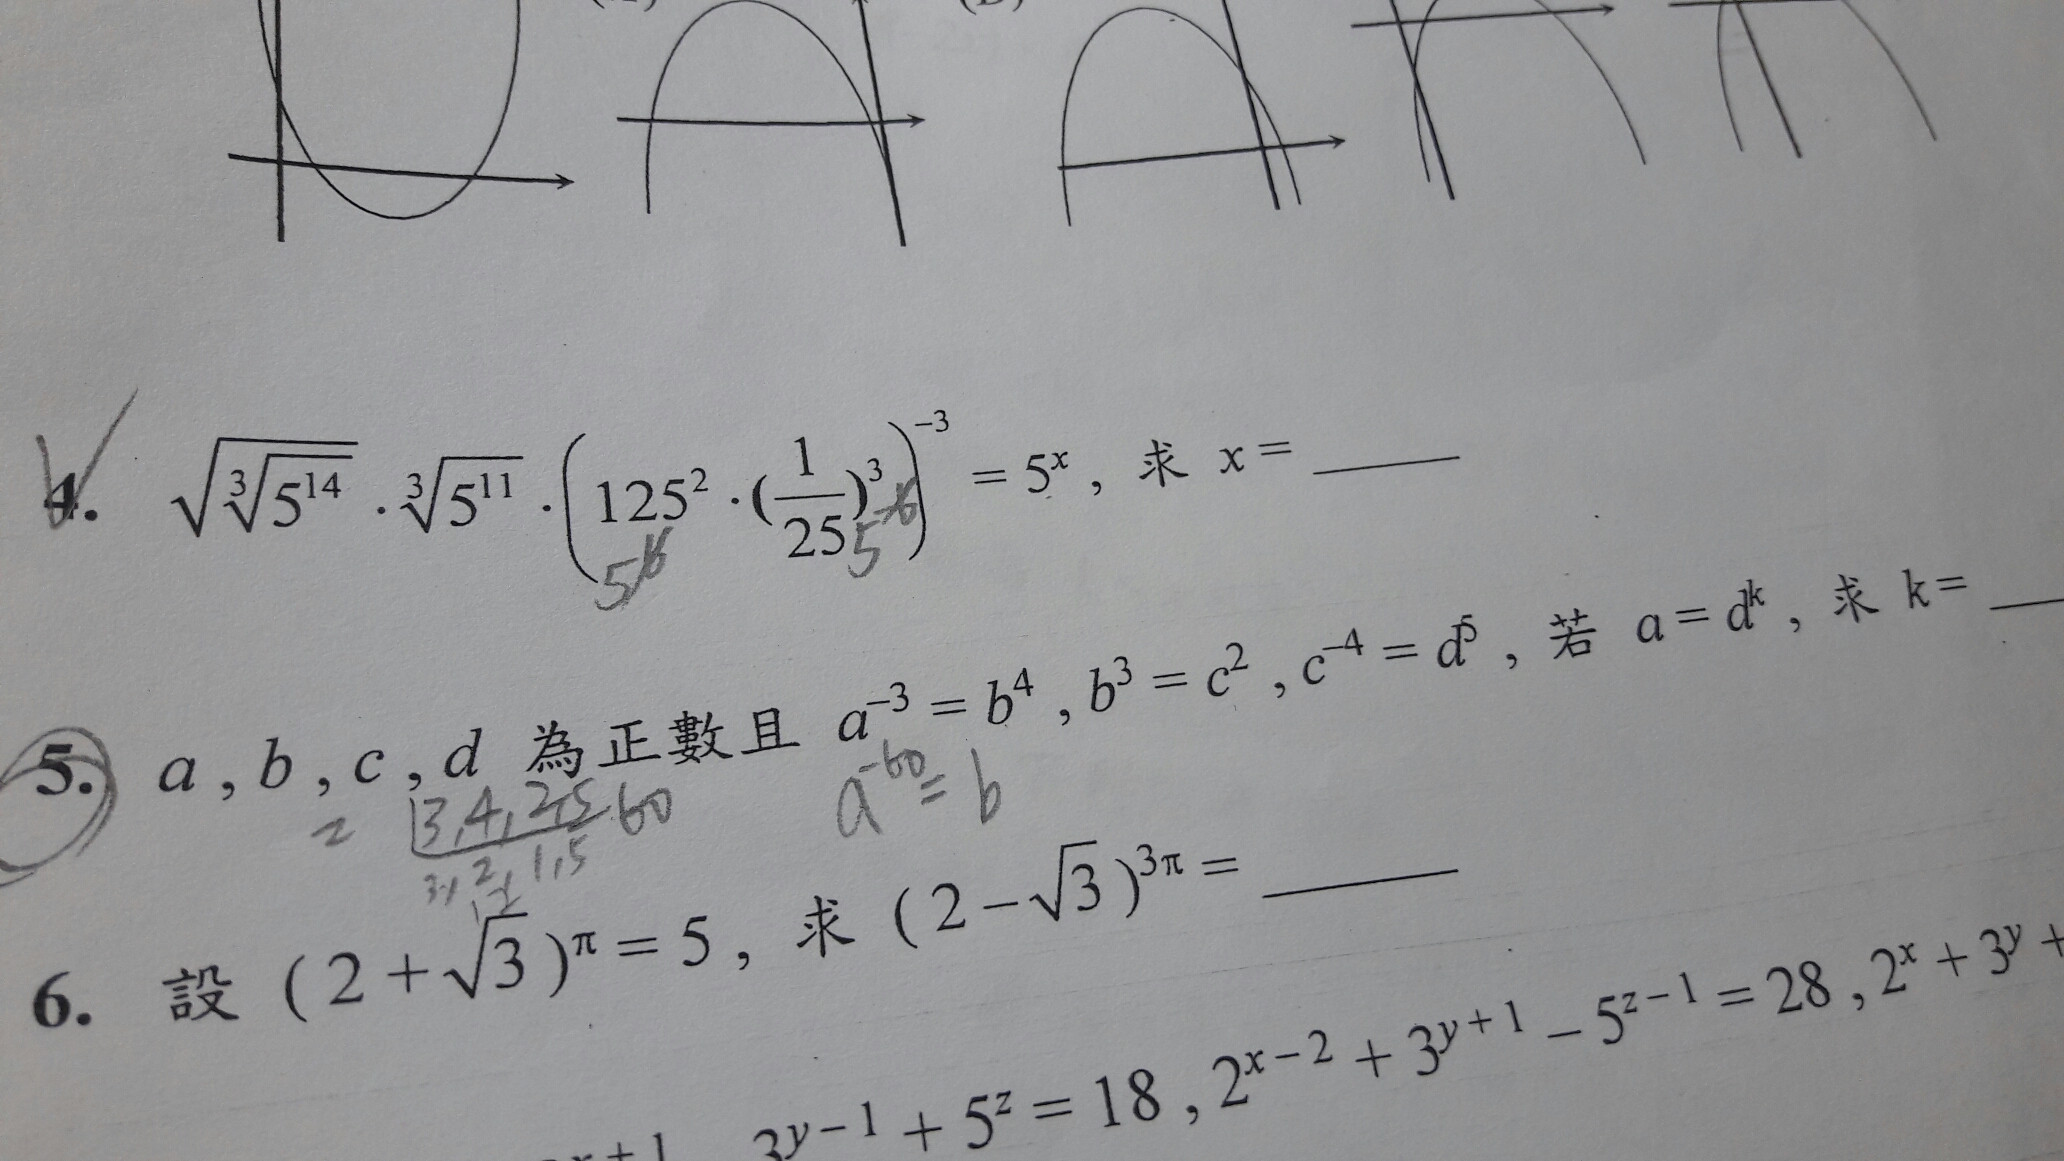 4. √(³√(5¹⁴)) · ³√(5¹¹) · (125² · (1/25)³)⁻³ = 5ˣ , 求 x = ____
5⁶ 5⁻⁶
5. a , b , c , d 為正數且 a⁻³ = b⁴ , b³ = c² , c⁻⁴ = d⁵ , 若 a = dᵏ , 求 k = __
= 3,4,2,5 60 a⁻⁶⁰ = b
1,5
6. 設 ( 2 + √3 )^π = 5 , 求 ( 2 − √3 )^3π = ____
3ʸ⁻¹ + 5ᶻ = 18 , 2ˣ⁻² + 3ʸ⁺¹ − 5ᶻ⁻¹ = 28 , 2ˣ + 3ʸ +